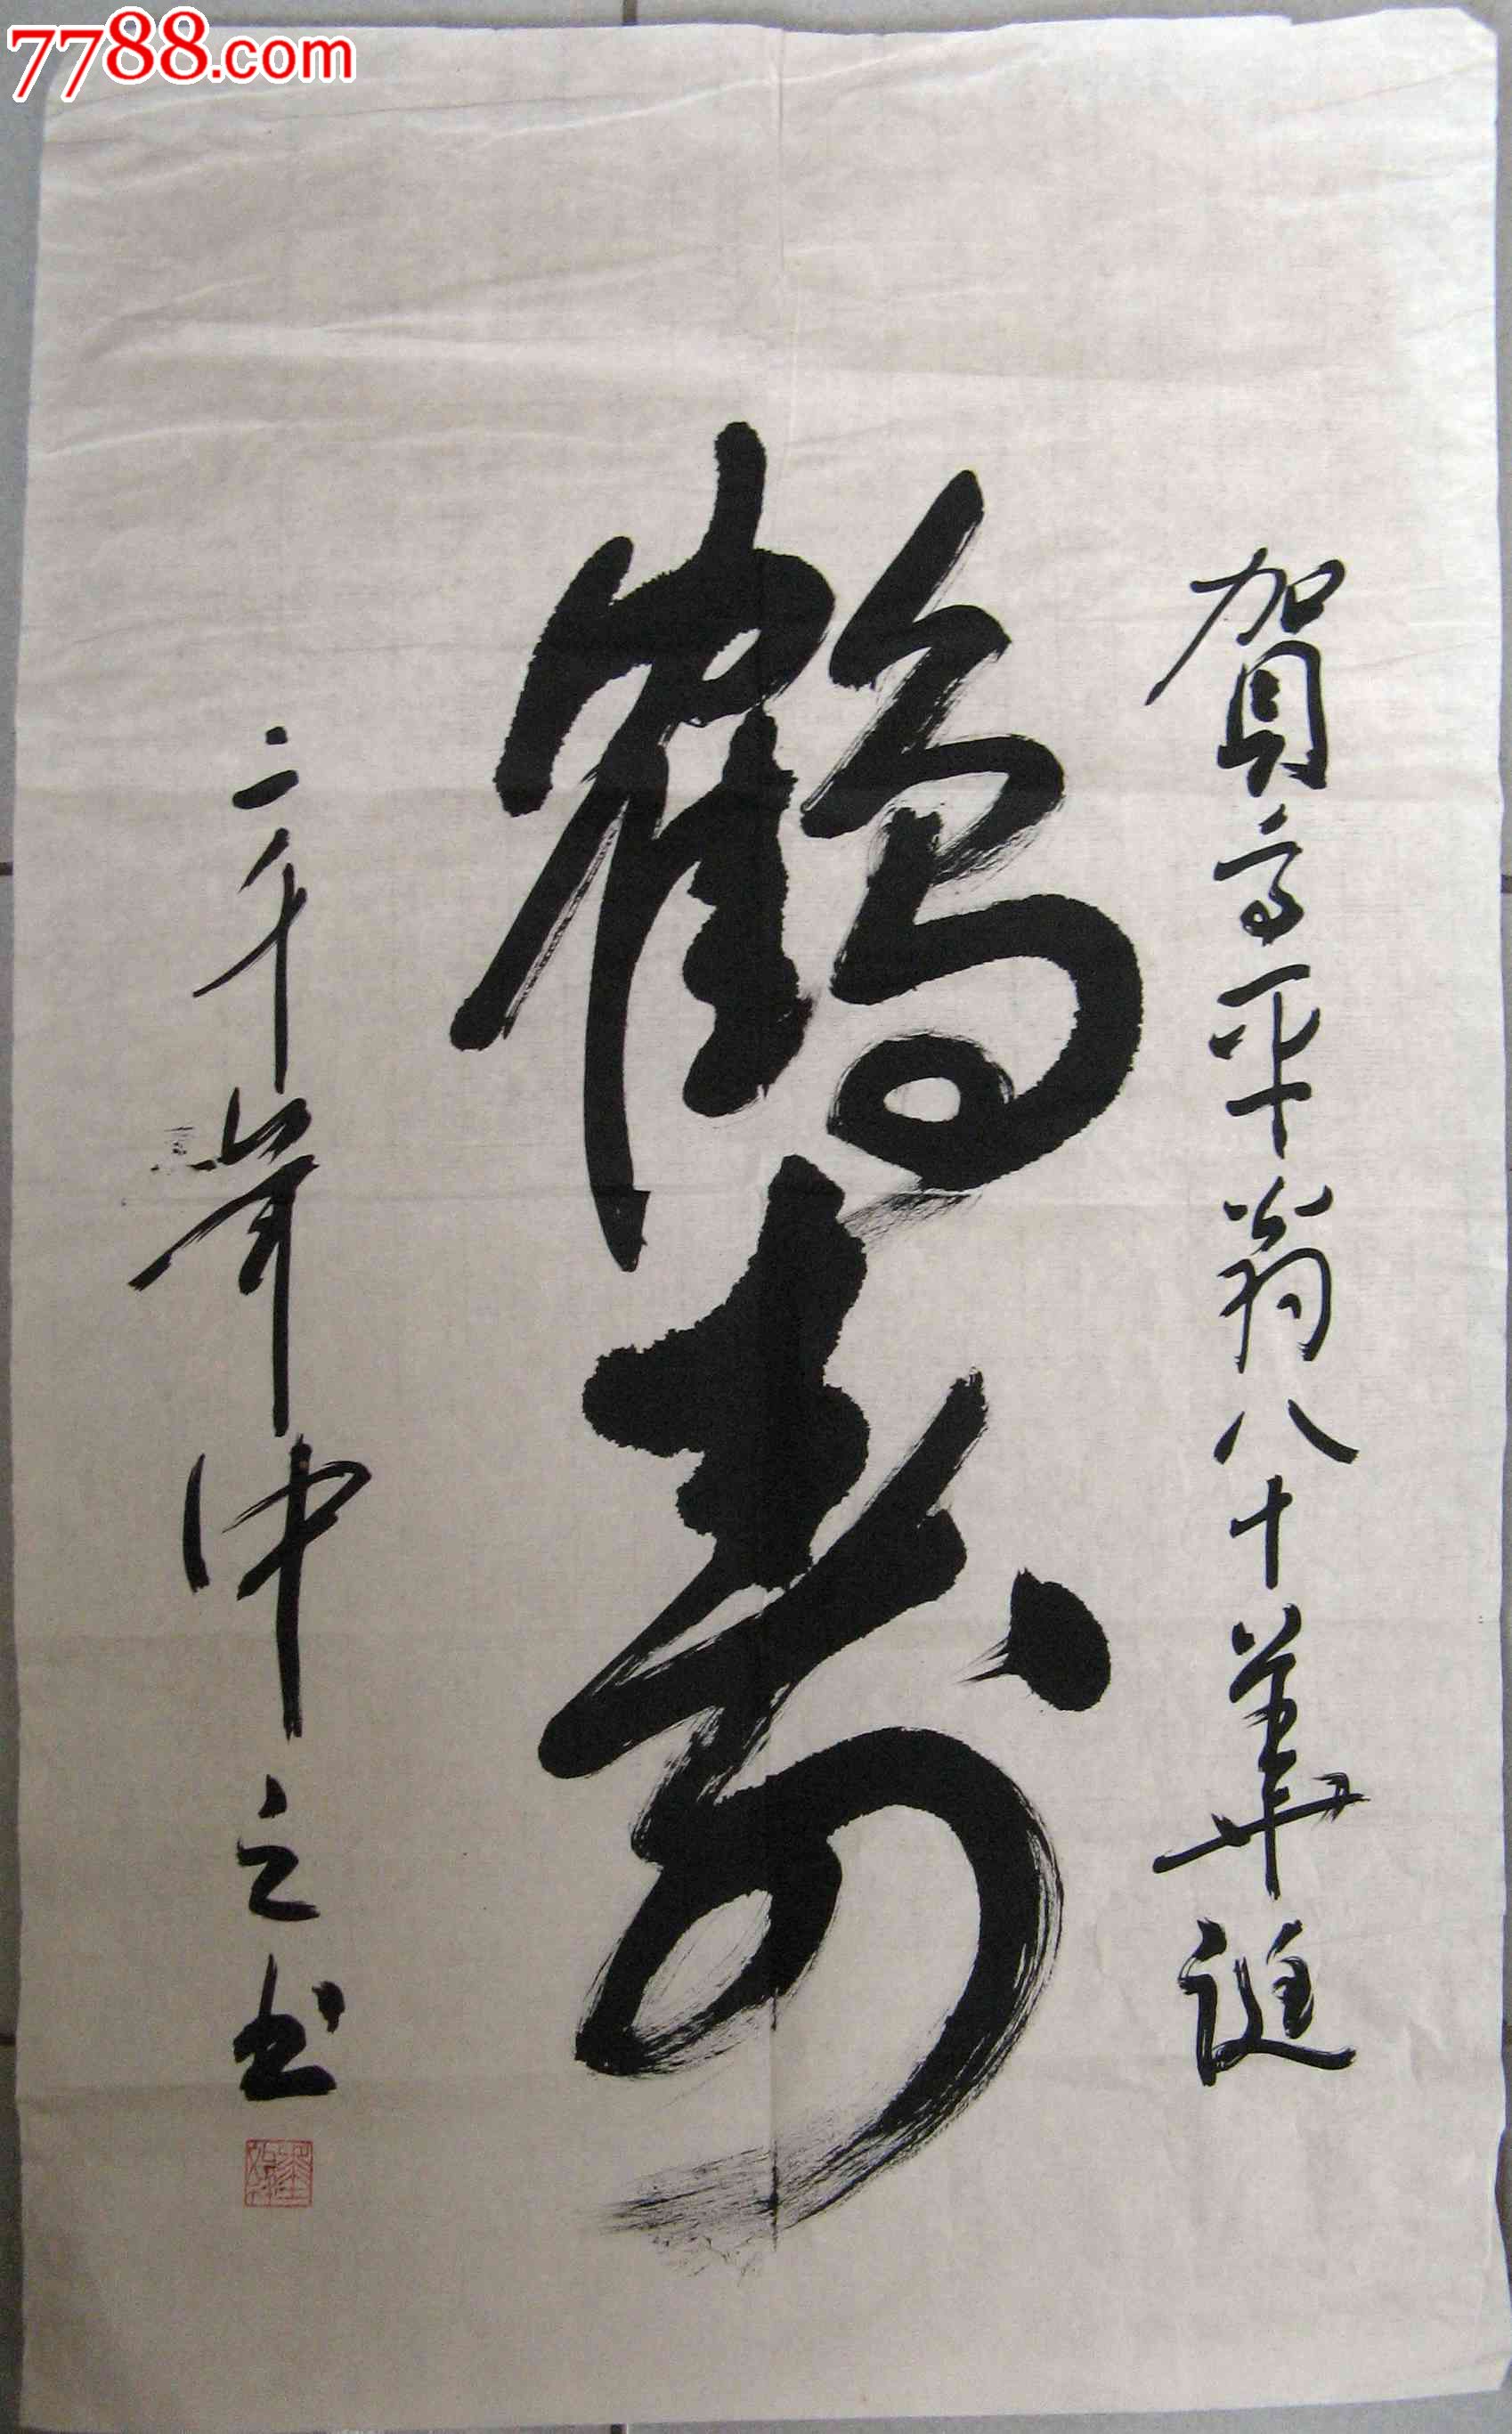 7788.com
賀高平翁八十華誕
鶴壽
二千年中之书